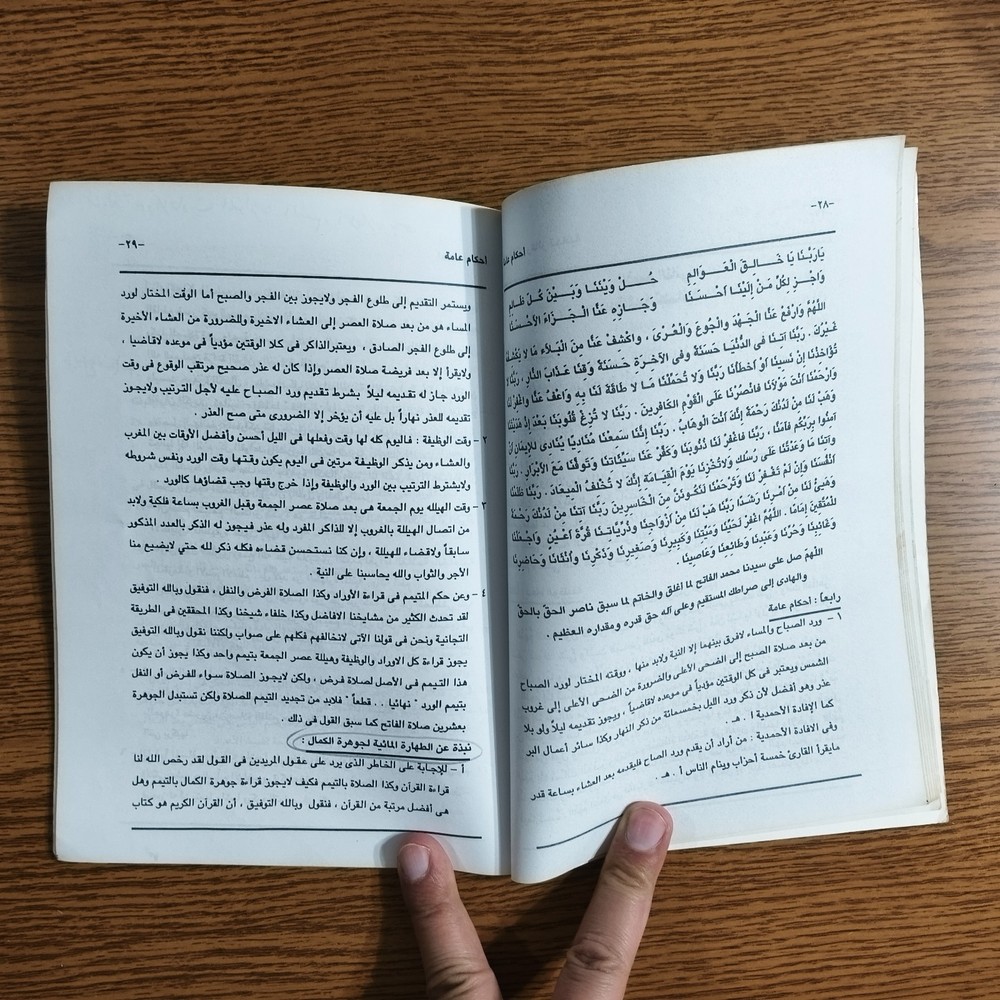 -٢٨-
أحكام عامة
يَارَبَّنَا يَا خَالِقَ الْعَوَالِمِ حُلْ وَيْنَنَا وَبَيْنَ كُلِّ ظَالِمِ
وَاجْزِ لِكُلِّ مَنْ إِلَيْنَا أَحْسَنَا وَجَازِهِ عَنَّا الْجَزَاءَ الأَحْسَنَا
اللَّهُمَّ وَارْفَعْ عَنَّا الْجَهْدَ وَالْجُوعَ وَالْعُرْىَ ، وَاكْشِفْ عَنَّا مِنَ الْبَلَاءِ مَا لَا يَكْشِفُهُ
غَيْرُكَ . رَبَّنَا آتِنَا فِى الدُّنْيَا حَسَنَةً وَفِى الآخِرَةِ حَسَنَةً وَقِنَا عَذَابَ النَّارِ ، رَبَّنَا لَا
تُؤَاخِذْنَا إِنْ نَسِينَا أَوْ أَخْطَأْنَا رَبَّنَا وَلَا تُحَمِّلْنَا مَا لَا طَاقَةَ لَنَا بِهِ وَاعْفُ عَنَّا وَاغْفِرْ لَنَا
وَارْحَمْنَا أَنْتَ مَوْلَانَا فَانْصُرْنَا عَلَى الْقَوْمِ الْكَافِرِينَ . رَبَّنَا لَا تُزِغْ قُلُوبَنَا بَعْدَ إِذْ هَدَيْتَنَا
وَهَبْ لَنَا مِنْ لَدُنْكَ رَحْمَةً إِنَّكَ أَنْتَ الْوَهَّابُ . رَبَّنَا إِنَّنَا سَمِعْنَا مُنَادِيًا يُنَادِى لِلإِيمَانِ أَنْ
آمِنُوا بِرَبِّكُمْ فَآمَنَّا ، رَبَّنَا فَاغْفِرْ لَنَا ذُنُوبَنَا وَكَفِّرْ عَنَّا سَيِّئَاتِنَا وَتَوَفَّنَا مَعَ الأَبْرَارِ . رَبَّنَا
وَآتِنَا مَا وَعَدْتَنَا عَلَى رُسُلِكَ وَلَاتُخْزِنَا يَوْمَ الْقِيَامَةِ إِنَّكَ لَا تُخْلِفُ الْمِيعَادَ . رَبَّنَا ظَلَمْنَا
أَنْفُسَنَا وَإِنْ لَمْ تَغْفِرْ لَنَا وَتَرْحَمْنَا لَنَكُونَنَّ مِنَ الْخَاسِرِينَ رَبَّنَا آتِنَا مِنْ لَدُنْكَ رَحْمَةً
وَهَيِّئْ لَنَا مِنْ أَمْرِنَا رَشَدًا رَبَّنَا هَبْ لَنَا مِنْ أَزْوَاجِنَا وَذُرِّيَّاتِنَا قُرَّةَ أَعْيُنٍ وَاجْعَلْنَا
لِلْمُتَّقِينَ إِمَامًا . اللَّهُمَّ اغْفِرْ لِحَيِّنَا وَمَيِّتِنَا وَكَبِيرِنَا وَصَغِيرِنَا وَذَكَرِنَا وَأُنْثَانَا وَحَاضِرِنَا
وَغَائِبِنَا وَحُرِّنَا وَعَبْدِنَا وَطَائِعِنَا وَعَاصِينَا .
اللهُمّ صل على سيدنا محمد الفاتح لما أغلق والخاتم لما سبق ناصر الحقّ بالحقّ
والهادى إلى صراطك المستقيم وعلى آله حق قدره ومقداره العظيم .
رابعاً : أحكام عامة
١ – ورد الصباح والمساء لافرق بينهما إلا النية ولابد منها ، ووقته المختار لورد الصباح
من بعد صلاة الصبح إلى الضحى الأعلى والضرورة من الضحى الأعلى إلى غروب
الشمس ويعتبر فى كل الوقتين مؤدياً فى موعده لاقاضياً ، ويجوز تقديمه ليلاً ولو بلا
عذر وهو أفضل لأن ذكر ورد الليل بخمسمائة من ذكر النهار وكذا سائر أعمال البر
كما الإفادة الأحمدية أ . هـ .
وفى الافادة الأحمدية : من أراد أن يقدم ورد الصباح فليقدمه بعد العشاء بساعة قدر
مايقرأ القارئ خمسة أحزاب وينام الناس أ . هـ .
-٢٩-
أحكام عامة
ويستمر التقديم إلى طلوع الفجر ولايجوز بين الفجر والصبح أما الوقت المختار لورد
المساء هو من بعد صلاة العصر إلى العشاء الاخيرة والضرورة من العشاء الأخيرة
إلى طلوع الفجر الصادق ، ويعتبرالذاكر فى كلا الوقتين مؤدياً فى موعده لاقاضيا ،
ولايقرأ إلا بعد فريضة صلاة العصر وإذا كان له عذر صحيح مرتقب الوقوع فى وقت
الورد جاز له تقديمه ليلاً بشرط تقديم ورد الصباح عليه لأجل الترتيب ولايجوز
تقديمه للعذر نهاراً بل عليه أن يؤخر إلا الضرورى متى صح العذر .
٢ – وقت الوظيفة : فاليوم كله لها وقت وفعلها فى الليل أحسن وأفضل الأوقات بين المغرب
والعشاء ومن يذكر الوظيفة مرتين فى اليوم يكون وقتها وقت الورد ونفس شروطه
ولايشترط الترتيب بين الورد والوظيفة وإذا خرج وقتها وجب قضاؤها كالورد .
٣ – وقت الهيلله يوم الجمعة هى بعد صلاة عصر الجمعة وقبل الغروب بساعة فلكية ولابد
من اتصال الهيللة بالغروب إلا للذاكر المفرد وله عذر فيجوز له الذكر بالعدد المذكور
سابقاً ولاقضاء للهيللة ، وإن كنا نستحسن قضاءه فكله ذكر لله حتي لايضيع منا
الأجر والثواب والله يحاسبنا على النية .
٤ – وعن حكم المتيمم فى قراءة الأوراد وكذا الصلاة الفرض والنفل ، فنقول وبالله التوفيق
لقد تحدث الكثير من مشايخنا الافاضل وكذا خلفاء شيخنا وكذا المحققين فى الطريقة
التجانية ونحن فى قولنا الآتى لانخالفهم فكلهم على صواب ولكننا نقول وبالله التوفيق
يجوز قراءة كل الاوراد والوظيفة وهيللة عصر الجمعة بتيمم واحد وكذا يجوز أن يكون
هذا التيمم فى الأصل لصلاة فرض ، ولكن لايجوز الصلاة سواء للفرض أو النفل
بتيمم الورد " نهائيا . . قطعاً " فلابد من تجديد التيمم للصلاة ولكن تستبدل الجوهرة
بعشرين صلاة الفاتح كما سبق القول فى ذلك .
نبذة عن الطهارة المائية لجوهرة الكمال :
أ – للإجابة على الخاطر الذى يرد على عقول المريدين فى القول لقد رخص الله لنا
قراءة القرآن وكذا الصلاة بالتيمم فكيف لايجوز قراءة جوهرة الكمال بالتيمم وهل
هى أفضل مرتبة من القرآن ، فنقول وبالله التوفيق ، أن القرآن الكريم هو كتاب